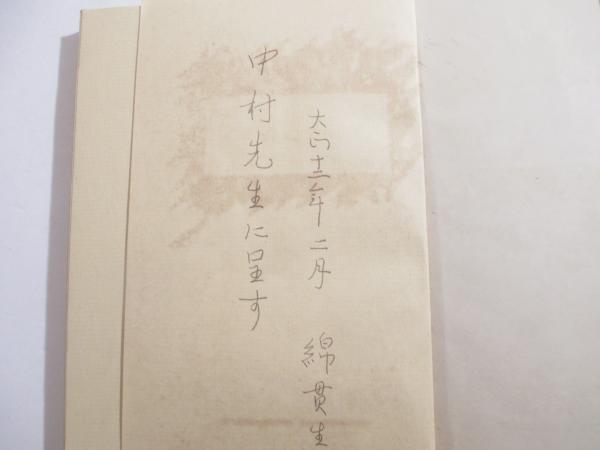 大正十三年二月
綿貫生
中村先生に呈す